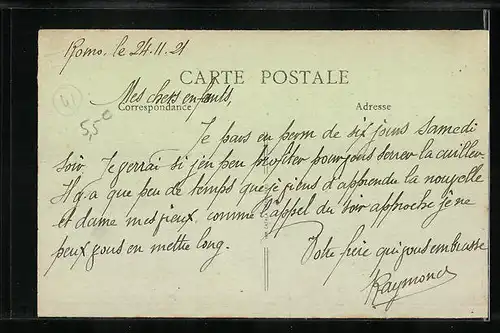 Romo, le 24.11.21
41
5,5€
CARTE POSTALE
Mes chers enfants,
Correspondance
Adresse
Je pars en perm de six jours samedi
soir. Je verrai si j'en peu profiter pour vous serrer la cuiller
Il y a que peu de temps que je viens d'apprendre la nouvelle
et dame mes vieux, comme l'appel du soir approche je ne
peux vous en mettre long.
Votre frère qui vous embrasse
Raymond